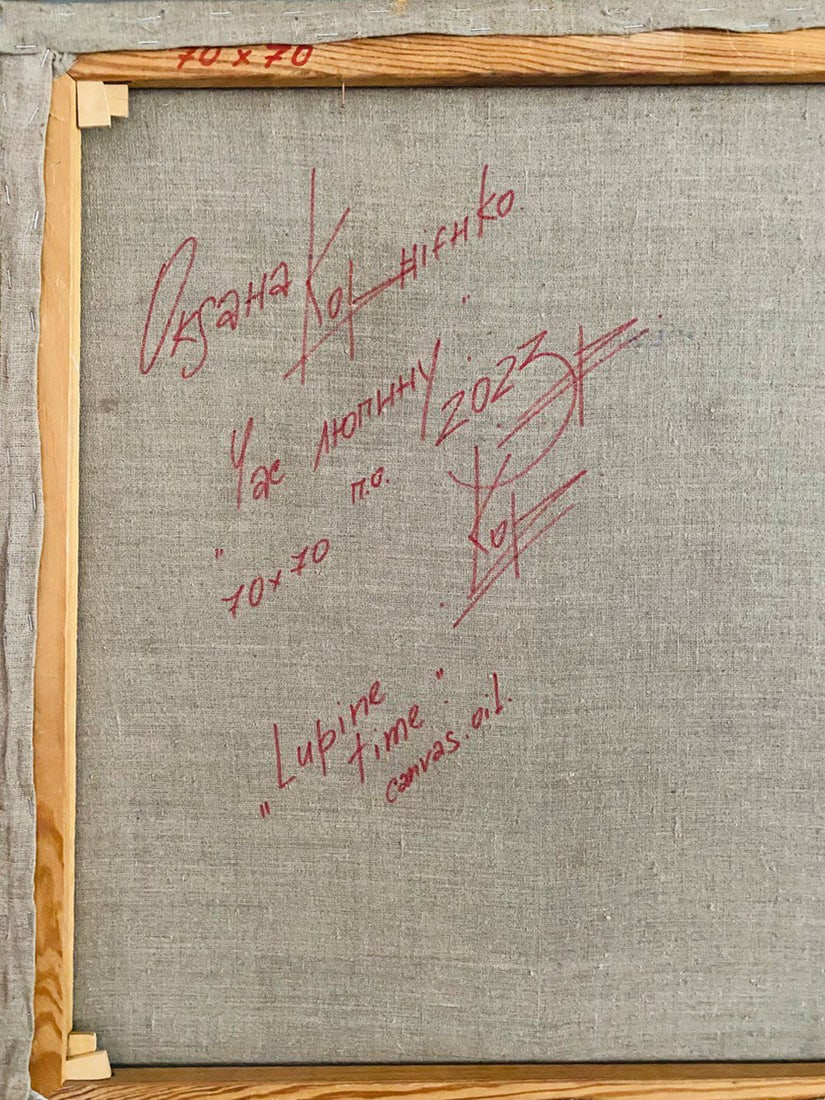 70 x 70
Оксана Корнієнко
"Час люпину" 2023
п.о.
70x70
Кор
"Lupine
time".
canvas.oil.